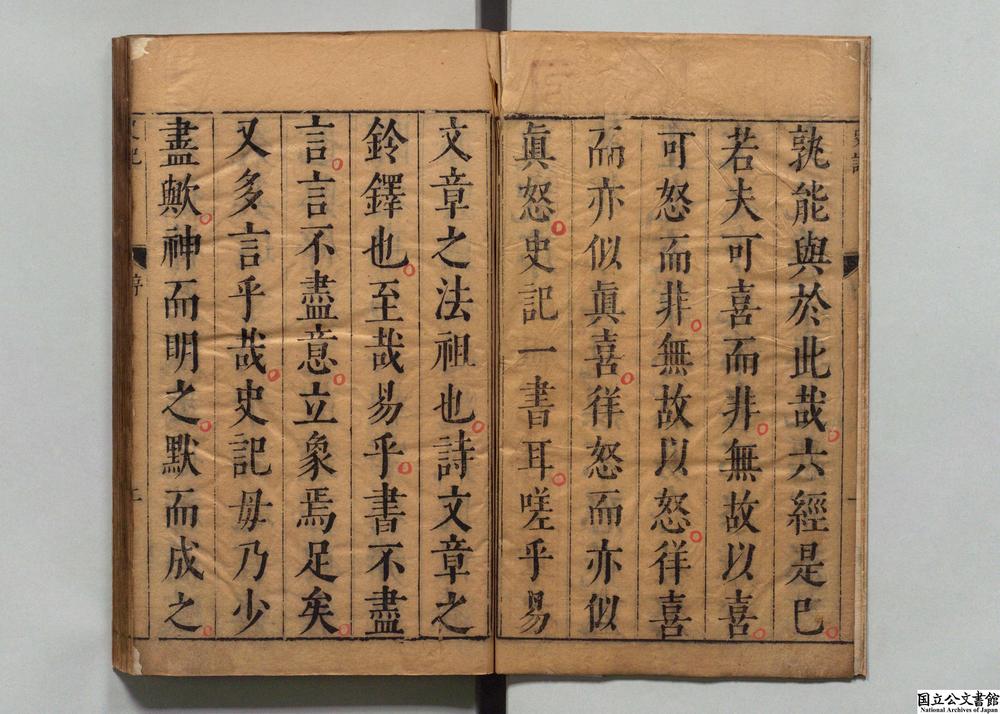 孰能與於此哉六經是已
若夫可喜而非無故以喜
可怒而非無故以怒徉喜
而亦似眞喜徉怒而亦似
眞怒史記一書耳嗟乎易
文章之法祖也詩文章之
鈴鐸也至哉易乎書不盡
言言不盡意立象焉足矣
又多言乎哉史記毋乃少
盡歟神而明之默而成之
史記
序
国立公文書館
National Archives of Japan